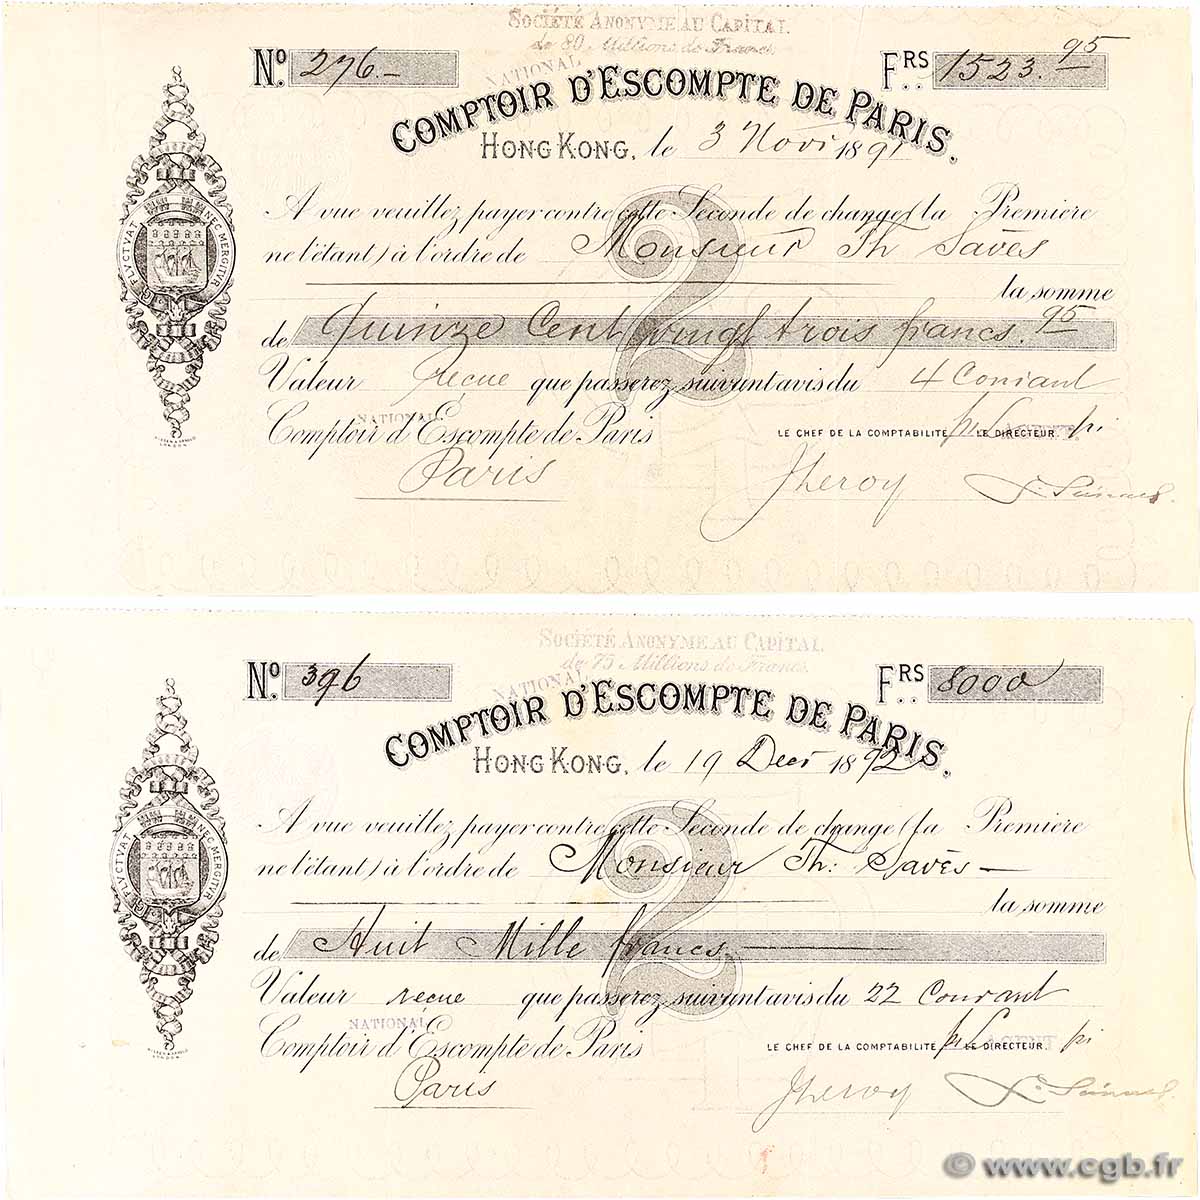 SOCIÉTÉ ANONYME AU CAPITAL
de 80 Millions de Francs
NATIONAL
No. 276.- FRS 1523.95
COMPTOIR D'ESCOMPTE DE PARIS.
HONG KONG, le 3 Nov 1891
FLVCTVAT NEC MERGITVR
A vue veuillez payer contre cette Seconde de change (la Première
ne l'étant) à l'ordre de Monsieur Th Savès
la somme
de Quinze Cent vingt trois francs. 95
Valeur reçue que passerez suivant avis du 4 Courant
NATIONAL
Comptoir d'Escompte de Paris LE CHEF DE LA COMPTABILITÉ pr L'AGENT LE DIRECTEUR. pi
Paris
2
LONDON
SOCIÉTÉ ANONYME AU CAPITAL
de 75 Millions de Francs
NATIONAL
No. 396 FRS 8000
COMPTOIR D'ESCOMPTE DE PARIS.
HONG KONG, le 19 Decr 1892
FLVCTVAT NEC MERGITVR
A vue veuillez payer contre cette Seconde de change (la Première
ne l'étant) à l'ordre de Monsieur Th: Savès
la somme
de Huit Mille francs
Valeur reçue que passerez suivant avis du 22 Courant
NATIONAL
Comptoir d'Escompte de Paris LE CHEF DE LA COMPTABILITÉ pr L'AGENT LE DIRECTEUR. pi
Paris
2
LONDON
© www.cgb.fr